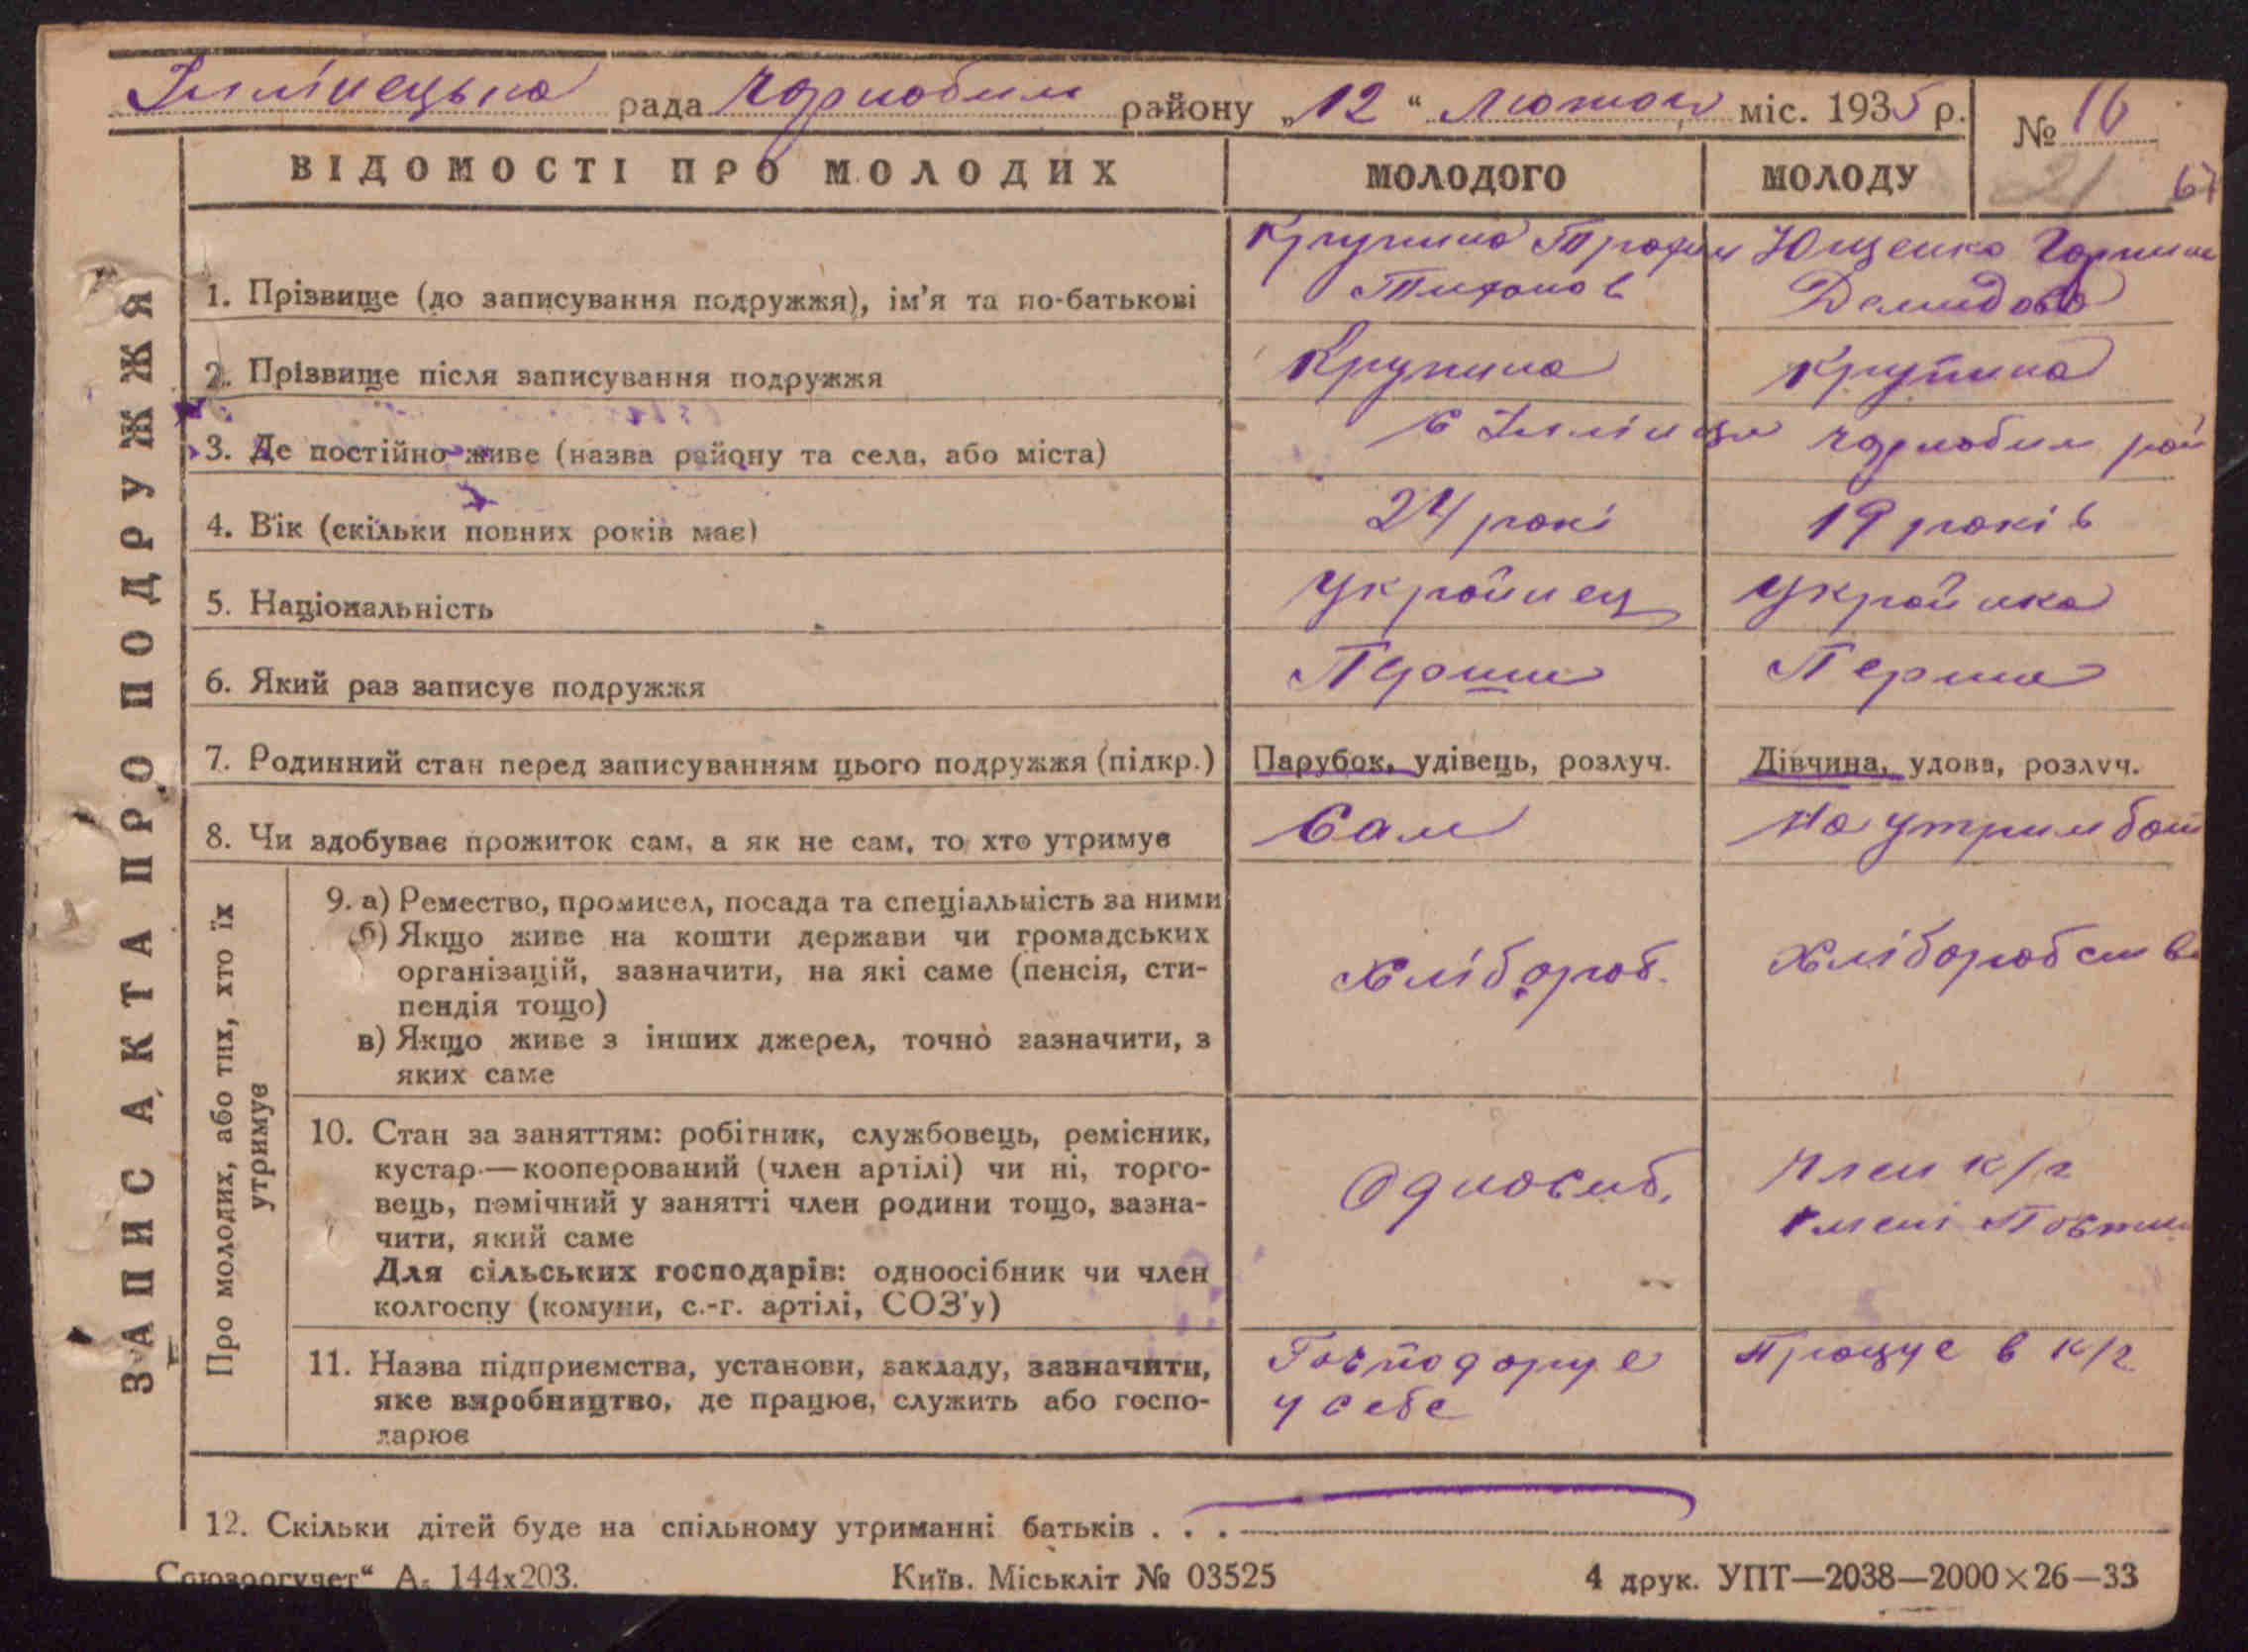 Іллінецька рада Чорнобил району „12“ Лютого міс. 1935 р. № 16
21 67
ВІДОМОСТІ ПРО МОЛОДИХ МОЛОДОГО МОЛОДУ
ЗАПИС АКТА ПРО ПОДРУЖЖЯ
1. Прізвище (до записування подружжя), ім’я та по-батькові Крупина Трофим Тихонов Ющенко Горпина Демидова
2. Прізвище після записування подружжя Крупина Крупина
3. Де постійно живе (назва району та села, або міста) с Іллінці Чорнобил рай
4. Вік (скільки повних років має) 24 рокі 19 років
5. Національність Українец Українка
6. Який раз записує подружжя Перший Перша
7. Родинний стан перед записуванням цього подружжя (підкр.) Парубок, удівець, розлуч. Дівчина, удова, розлуч.
8. Чи здобуває прожиток сам, а як не сам, то хто утримує Сам На утрим бат
Про молодих, або тих, хто їх утримує
9. а) Ремество, промисел, посада та спеціальність за ними
б) Якщо живе на кошти держави чи громадських
організацій, зазначити, на які саме (пенсія, сти-
пендія тощо)
в) Якщо живе з інших джерел, точно зазначити, з
яких саме
Хлібороб. Хліборобств
10. Стан за заняттям: робітник, службовець, ремісник,
кустар—кооперований (член артілі) чи ні, торго-
вець, помічний у занятті член родини тощо, зазна-
чити, який саме
Для сільських господарів: одноосібник чи член
колгоспу (комуни, с.-г. артілі, СОЗ’у)
Одноосиб. Член к/г
імені
11. Назва підприємства, установи, закладу, зазначити,
яке виробництво, де працює, служить або госпо-
дарює
Господарує
у себе
Працує в к/г
12. Скільки дітей буде на спільному утриманні батьків . . .
Союзоргучет“ А₅ 144х203. Київ. Міськліт № 03525 4 друк. УПТ—2038—2000×26—33